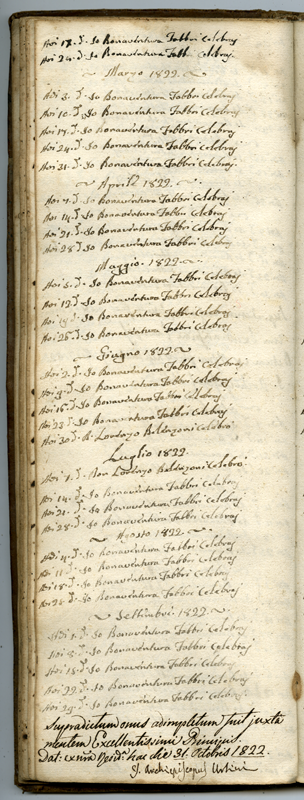 Adi 17. d.º Io Bonaventura Fabbri Celebraj
Adi 24. d.º Io Bonaventura Fabb. Celebraj.
~ Marzo 1822. ~
Adi 3. d.º Io Bonaventura Fabbri Celebraj
Adi 10. d.º Io Bonaventura Fabbri Celebraj
Adi 17. d.º Io Bonaventura Fabbri Celebraj
Adi 24. d.º Io Bonaventura Fabbri Celebraj
Adi 31. d.º Io Bonaventura Fabbri Celebraj.
~ Aprile 1822. ~
Adi 7. d.º Io Bonaventura Fabbri Celebraj
Adi 14. d.º Io Bonaventura Fabbri Celebraj
Adi 21. d.º Io Bonaventura Fabbri Celebraj
Adi 28 d.º Io Bonaventura Fabbri Celebraj
Maggio. 1822. ~
Adi 5. d.º Io Bonaventura Fabbri Celebraj
Adi 12. d.º Io Bonaventura Fabbri Celebraj
Adi 19. d.º Io Bonaventura Fabbri Celebraj
Adi 26. d.º Io Bonaventura Fabbri Celebraj
~ Giugno 1822. ~
Adi 2. d.º Io Bonaventura Fabbri Celebraj
Adi 9. d.º Io Bonaventura Fabbri Celebraj
Adi 16. d.º Io Bonaventura Fabbri Celebraj
Adi 23. d.º Io Bonaventura Fabbri Celebraj
Adi 30. d.º Lorenzo Baldazoni Celebrò
Luglio 1822.
Adi 7. d.º Don Lorenzo Baldazoni Celebrò
Adi 14. d.º Io Bonaventura Fabbri Celebraj
Adi 21. d.º Io Bonaventura Fabbri Celebraj
Adi 28. d.º Io Bonaventura Fabbri Celebraj
~ Agosto 1822. ~
Adi 4. d.º Io Bonaventura Fabbri Celebraj
Adi 11. d.º Io Bonaventura Fabbri Celebraj
Adi 18. d.º Io Bonaventura Fabbri Celebraj
Adi d.º Io Bonaventura Fabbri Celebraj
~ Settembre 1822. ~
Adi d.º Io Bonaventura Fabbri Celebraj
Adi d.º Io Bonaventura Fabbri Celebraj
Adi 15. d.º Io Bonaventura Fabbri Celebraj
Adi 22. d.º Io Bonaventura Fabbri Celebraj
Adi 29. d.º Io Bonaventura Fabbri Celebraj
Supradictum onus adimpletum fuit juxta
mentem Excellentissimi Principis.
Dat: ex hac die 31. Octobris 1822.